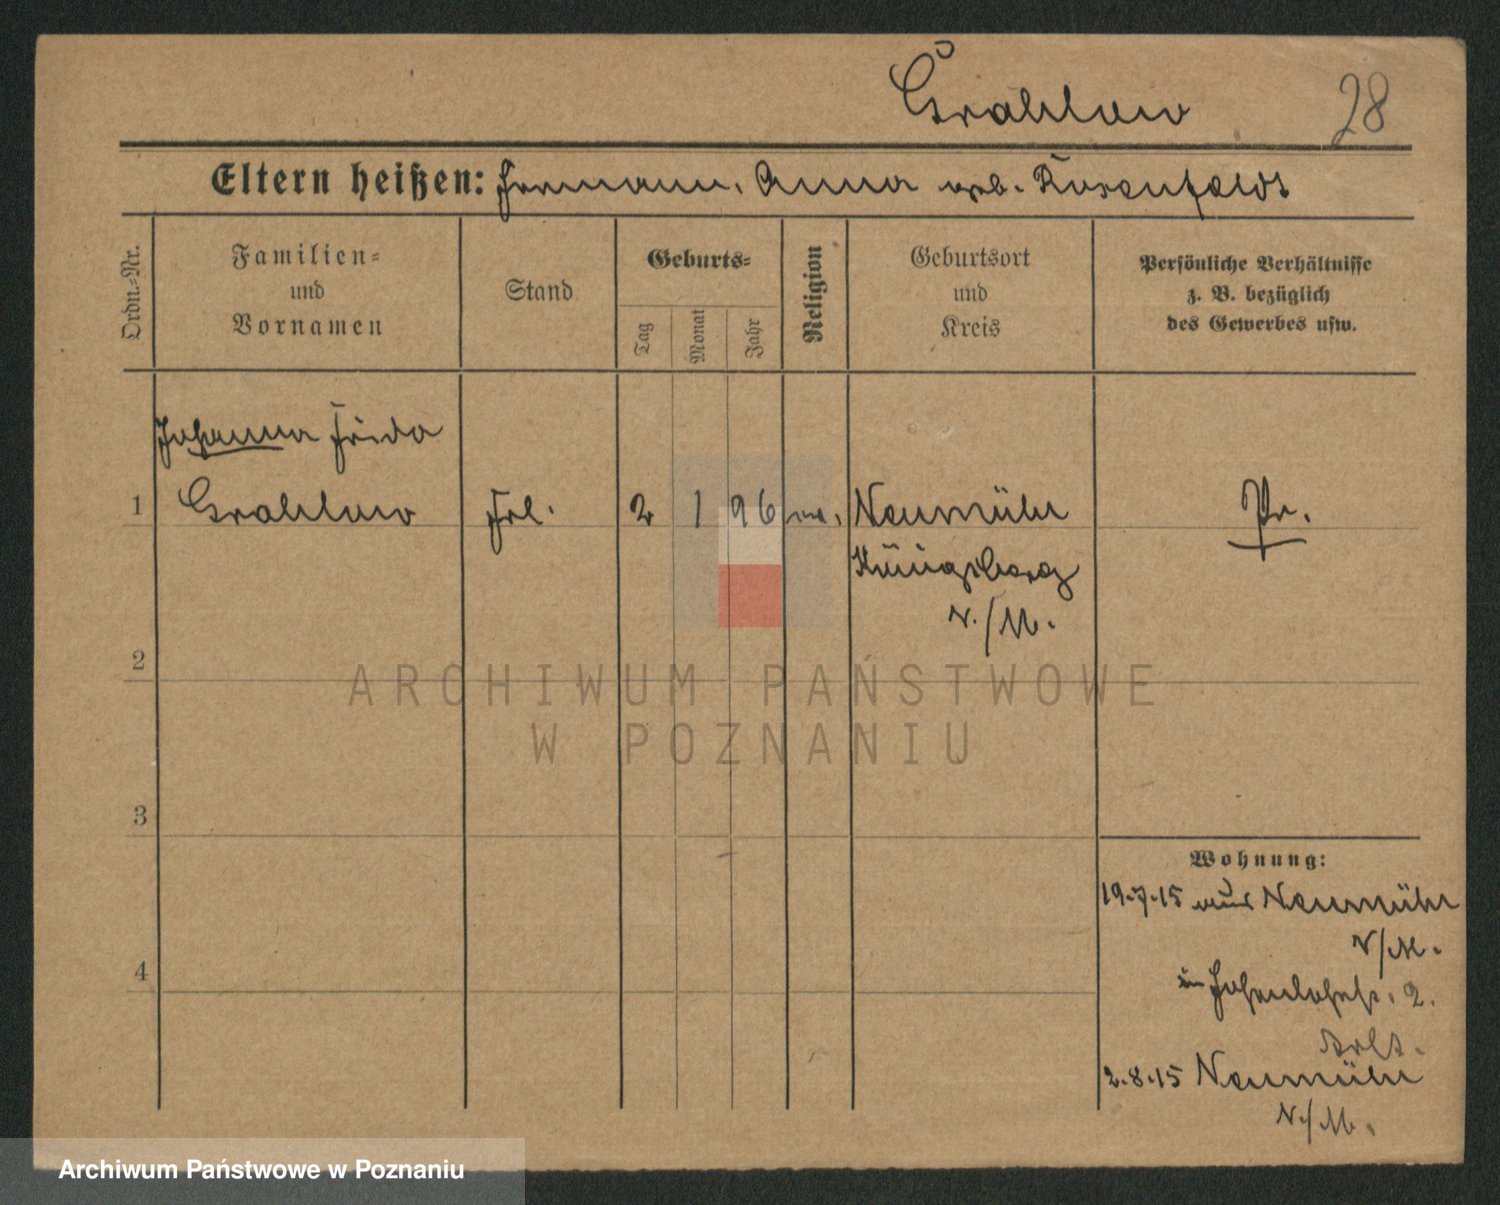 Grahlow 28
Eltern heißen: Hermann, Anna geb. Rosenfeldt
Ordn.-Nr.
Familien-
und
Vornamen
Stand
Geburts-
Tag
Monat
Jahr
Religion
Geburtsort
und
Kreis
Persönliche Verhältnisse
z. B. bezüglich
des Gewerbes usw.
Johanna Frida
1 Grahlow Frl. 2 1 96 ev. Neumühl Pr.
Königsberg
N./M.
2
ARCHIWUM PAŃSTWOWE
W POZNANIU
3
Wohnung:
19.7.15 aus Neumühl
N/M.
4
in Hohenlohestr. 2.
2.8.15 Neumühl
N./M.
Archiwum Państwowe w Poznaniu